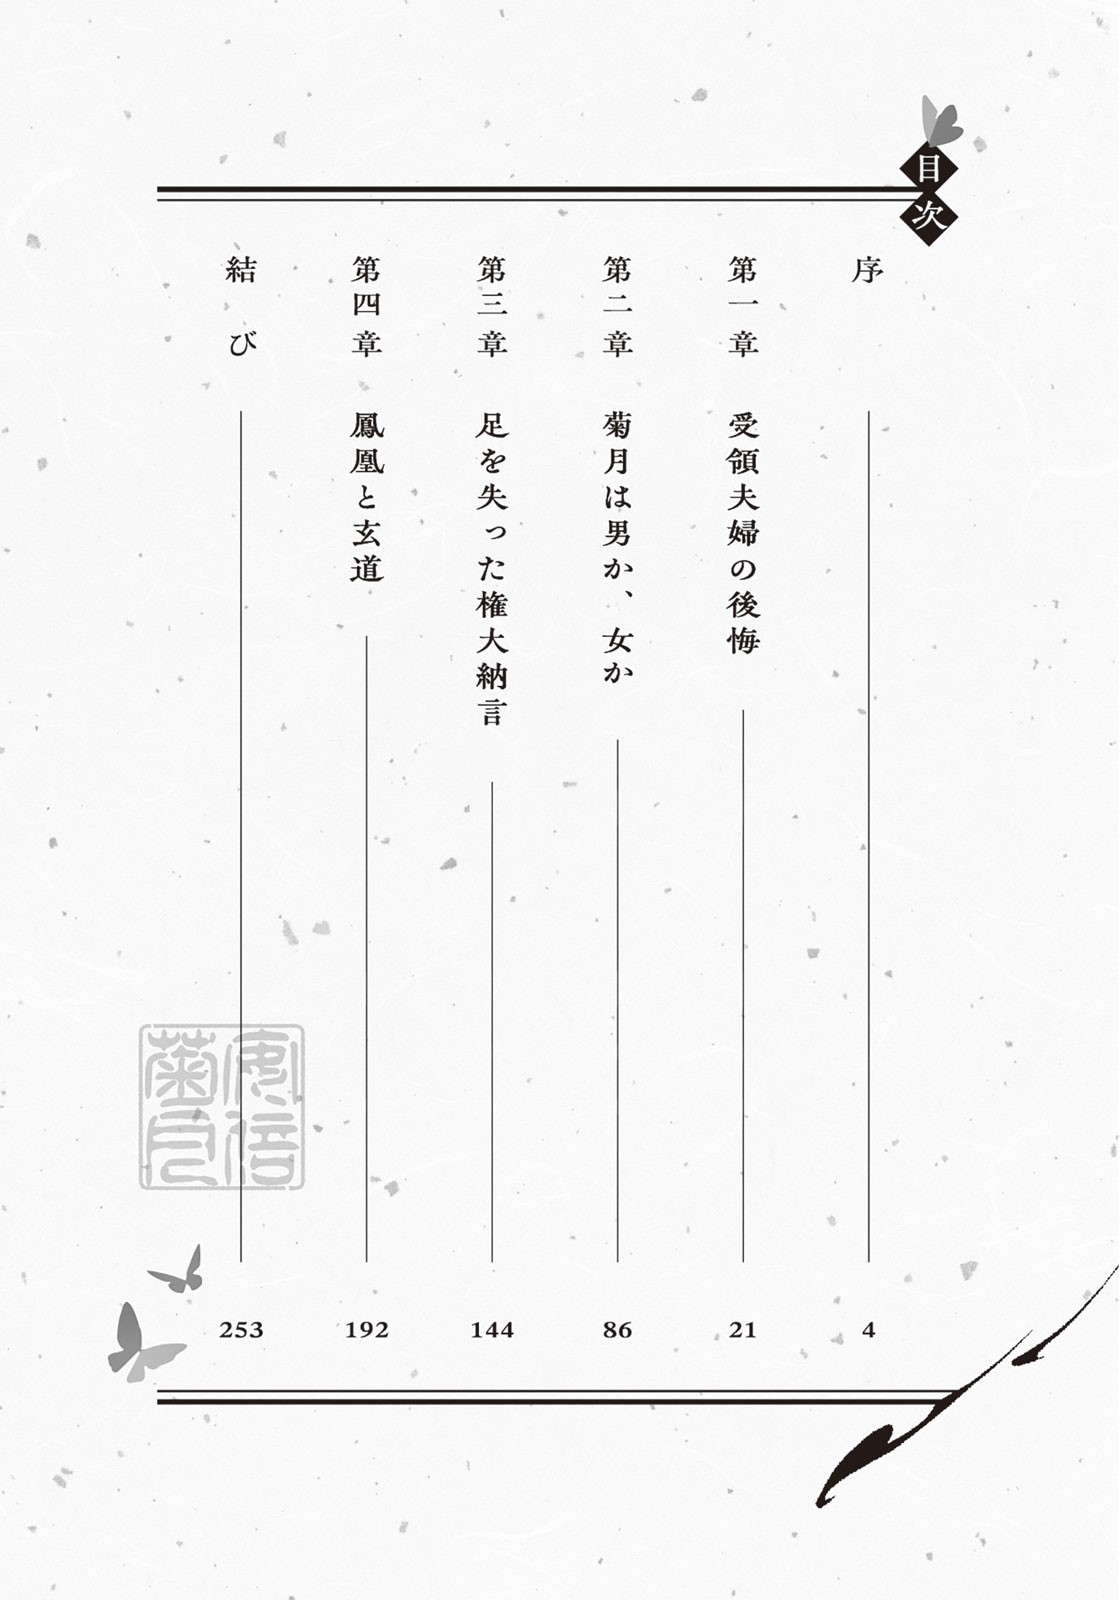 目次
序 4
第一章 受領夫婦の後悔 21
第二章 菊月は男か、女か 86
第三章 足を失った権大納言 144
第四章 鳳凰と玄道 192
結び 253
安倍
菊月